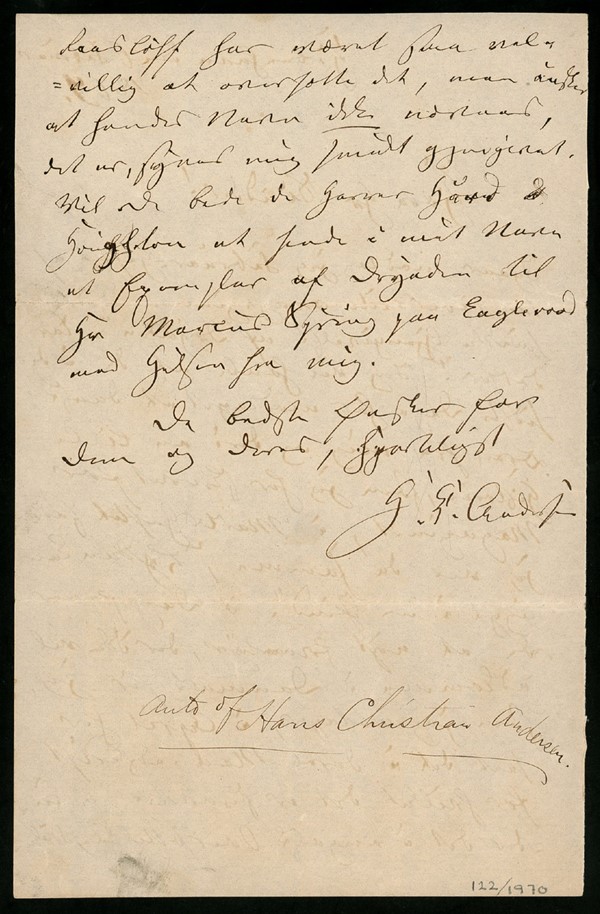 Raasløff har været saa vel=
=villig at oversætte det, men ønsker
at hendes Navn ikke nævnes,
det er, synes mig smukt gjengivet.
Vil De bede de Herrer Hurd &
Houghton at sende i mit Navn
et Exemplar af Dryaden til
Hr Marcus Spring paa Eaglewood
med Hilsen fra mig.
De bedste Ønsker for
Dem og Deres, hjerteligst
H. C. Andersen
Auto of Hans Christian Andersen.
122/1970